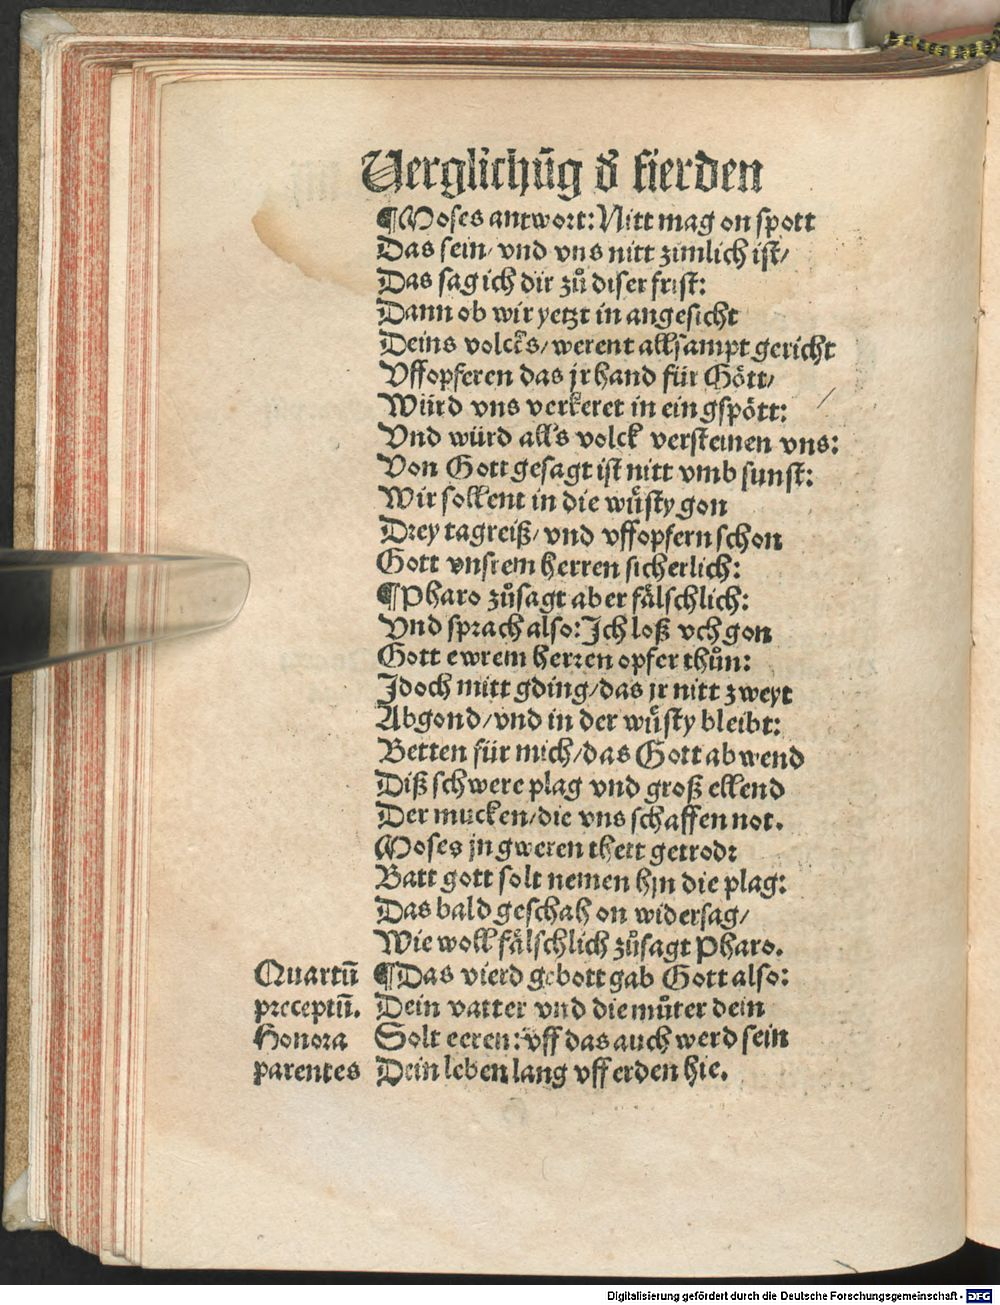 Verglichūg d̕ fierden
¶Moses antwort: Nitt mag on spott
Das sein/ vnd vns nitt zimlich ist/
Das sag ich dir zů diser frist:
Dann ob wir yetzt in angesicht
Deins volcks/ werent allsampt gericht
Vffopferen das jr hand für Gött/
Würd vns verkeret in ein gspött:
Vnd würd alls volck versteinen vns:
Von Gott gesagt ist nitt vmb sunst:
Wir sollent in die wůsty gon
Drey tagreiß/ vnd vffopfern schon
Gott vnsrem herren sicherlich:
¶Pharo zůsagt aber fälschlich:
Vnd sprach also: Ich loß vch gon
Gott ewrem herren opfer thůn:
Jdoch mitt gding/ das jr nitt zweyt
Abgond/ vnd in der wůsty bleibt:
Betten für mich/ das Gott abwend
Diß schwere plag vnd groß ellend
Der mucken/ die vns schaffen not.
Moses jn gweren thett getrod:
Batt gott solt nemen hjn die plag:
Das bald geschah on widersag/
Wie woll fälschlich zůsagt Pharo.
Quartū ¶Das vierd gebott gab Gott also:
preceptū. Dein vatter vnd die můter dein
Honora Solt eeren: vff das auch werd sein
parentes Dein leben lang vff erden hie.
Digitalisierung gefördert durch die Deutsche Forschungsgemeinschaft - DFG